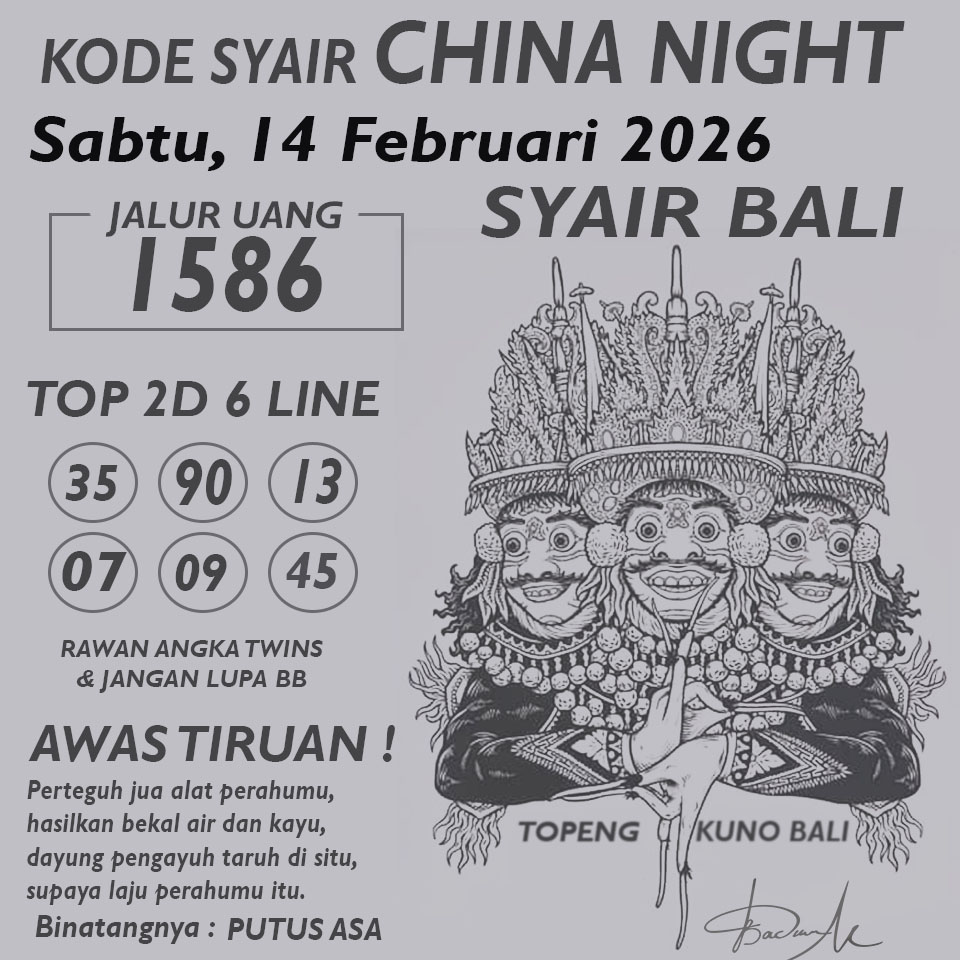 KODE SYAIR CHINA NIGHT
Sabtu, 14 Februari 2026
SYAIR BALI
JALUR UANG
1586
TOP 2D 6 LINE
35 90 13
07 09 45
RAWAN ANGKA TWINS
& JANGAN LUPA BB
AWAS TIRUAN !
Perteguh jua alat perahumu,
hasilkan bekal air dan kayu,
dayung pengayuh taruh di situ,
supaya laju perahumu itu.
Binatangnya : PUTUS ASA
TOPENG KUNO BALI